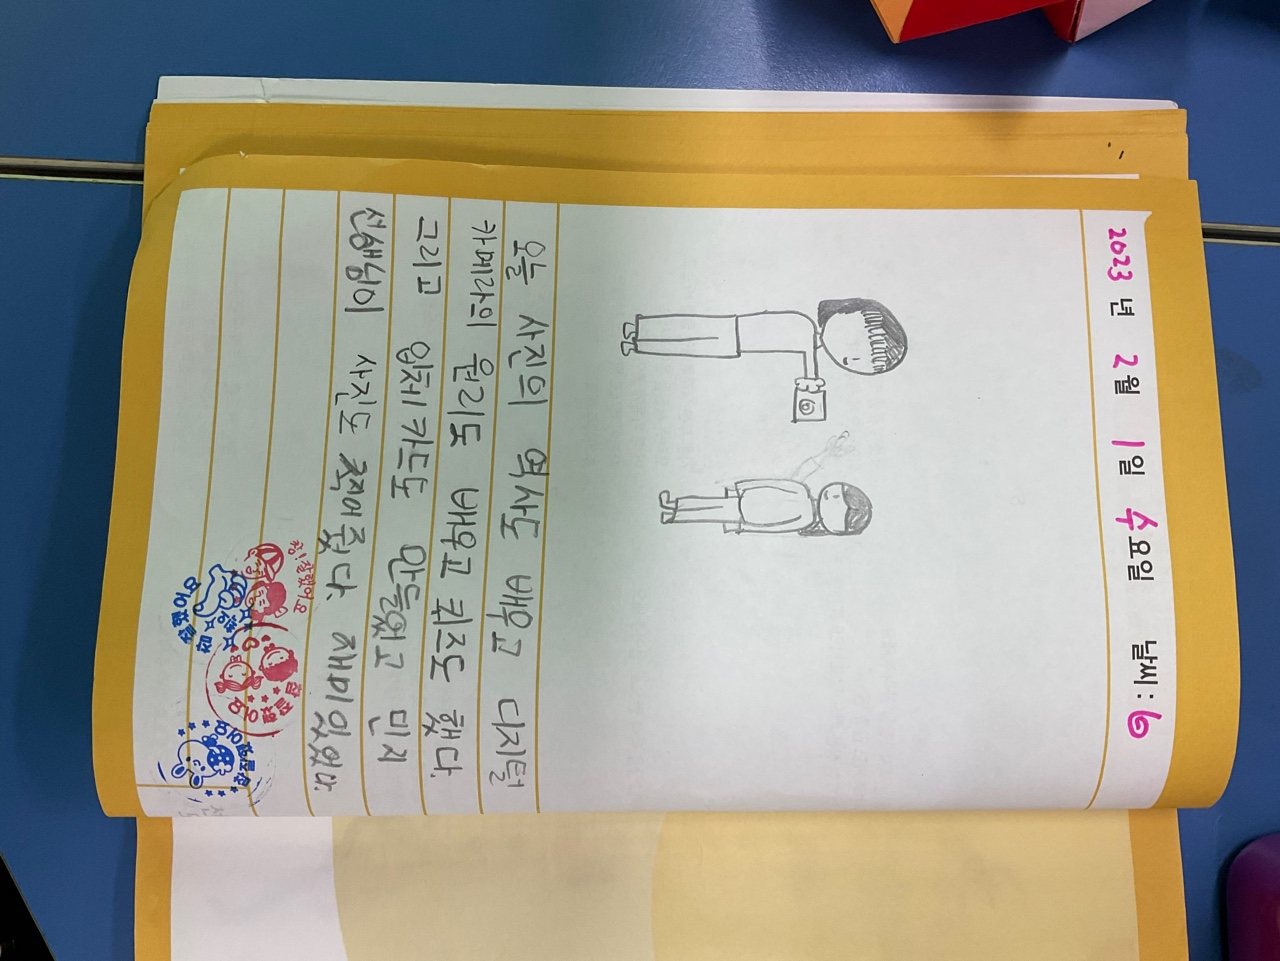 2023 년 2월 1일 수요일 날씨 : 6
오늘 사진의 역사도 배우고 디지털
카메라의 원리도 배우고 퀴즈도 했다.
그리고 입체 카드도 만들었고 민지
선생님이 사진도 찍어 줬다. 재미있었다.
참!잘했어요
참 잘했어요
참 잘했어요